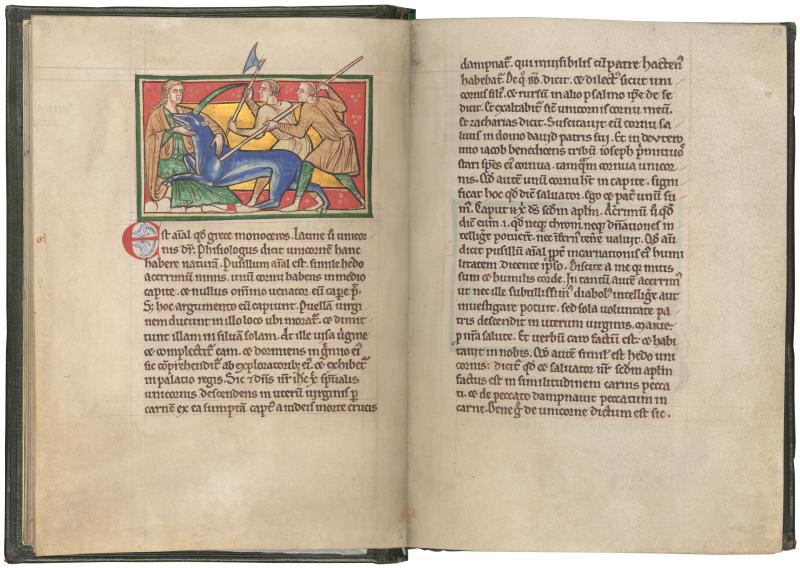 Est aīal qd grece monoceros. latine ū unicor
nis dr̄. Phisiologus dicit unicornē hanc
habere naturā. Pusillum aīal est. simile hedo
acerrimū nimis. unū cornu habens in medio
capite. et nullus om̄ino uenator eū cape pt̄.
S; hoc argumento eū capiunt. Puellā uirgi
nem ducunt in illo loco ubi moratᷣ. et dimit
tunt illam in siluā solam. At ille uisa ūgine
et complectitᷣ eam. et dormiens in gͤmio eiꝰ
sic cōprehenditᷣ ab exploratorib; eiꝰ. et exhibetᷣ
in palatio regis. Sic ⁊ dn̄s nr̄ ih̄c xp̄ spitalis
unicornis descendens in uterū uirginis p
carnē ex ea sumptā. captꝰ a iudeis morte crucis
dampnatᷣ. qui inuisibilis cū patre hactenꝰ
habebatᷣ. De qͦ dd̄. dicit. et dilectꝰ sicut uni
cornis filiꝰ. et rursū in alio psalmo ip̄e de se
dicit. Et exaltabitᷣ sic̄ unicornis cornu meū.
Et zacharias dicit. Suscitauit eū cornu sa
lutis in domo dauid patris sui. Et in deutero
mio iacob benedicens tribū ioseph pͥmitiuoꝰ
tauri spēs eiꝰ cornua. tamqͣm cornua unicor
nis. Qd autē unū cornu hēt in capite. signi
ficat hoc qd̄ dix̄ saluator. Ego et patᷣ unū su
mꝰ. Caput ei xp̄ ds̄ scdm apl̄m. Acrimū ū qd
dix̄ eum. qd neqͥ throni. neqͥ dn̄ationes in
tellige potuerꝭ. nec inferꝰ tene ualuit. Qd aū
dicit pusillū aīal ppt̄ incarnationis eiꝰ humi
litatem. dicente ipso. Discite a me qͥ mitis
sum et humilis corde. In tantū autē acerrimꝰ
ut nec ille subtilissimꝰ diabolꝰ intellige aut
inuestigare potuit. sed sola uoluntate pa
tris descendit in uterum uirginis. MARIE.
p nr̄a salute. Et uerbū caro factū est. et habi
tauit in nobis. Qd autē similꝭ est hedo uni
cornis. dicit qd et saluator nr̄ scdm apl̄m
factus est in similitudinem carnis pecca
ti. et de peccato dampnauit peccatum in
carne. Bene gͦ de unicorne dictum est sic.